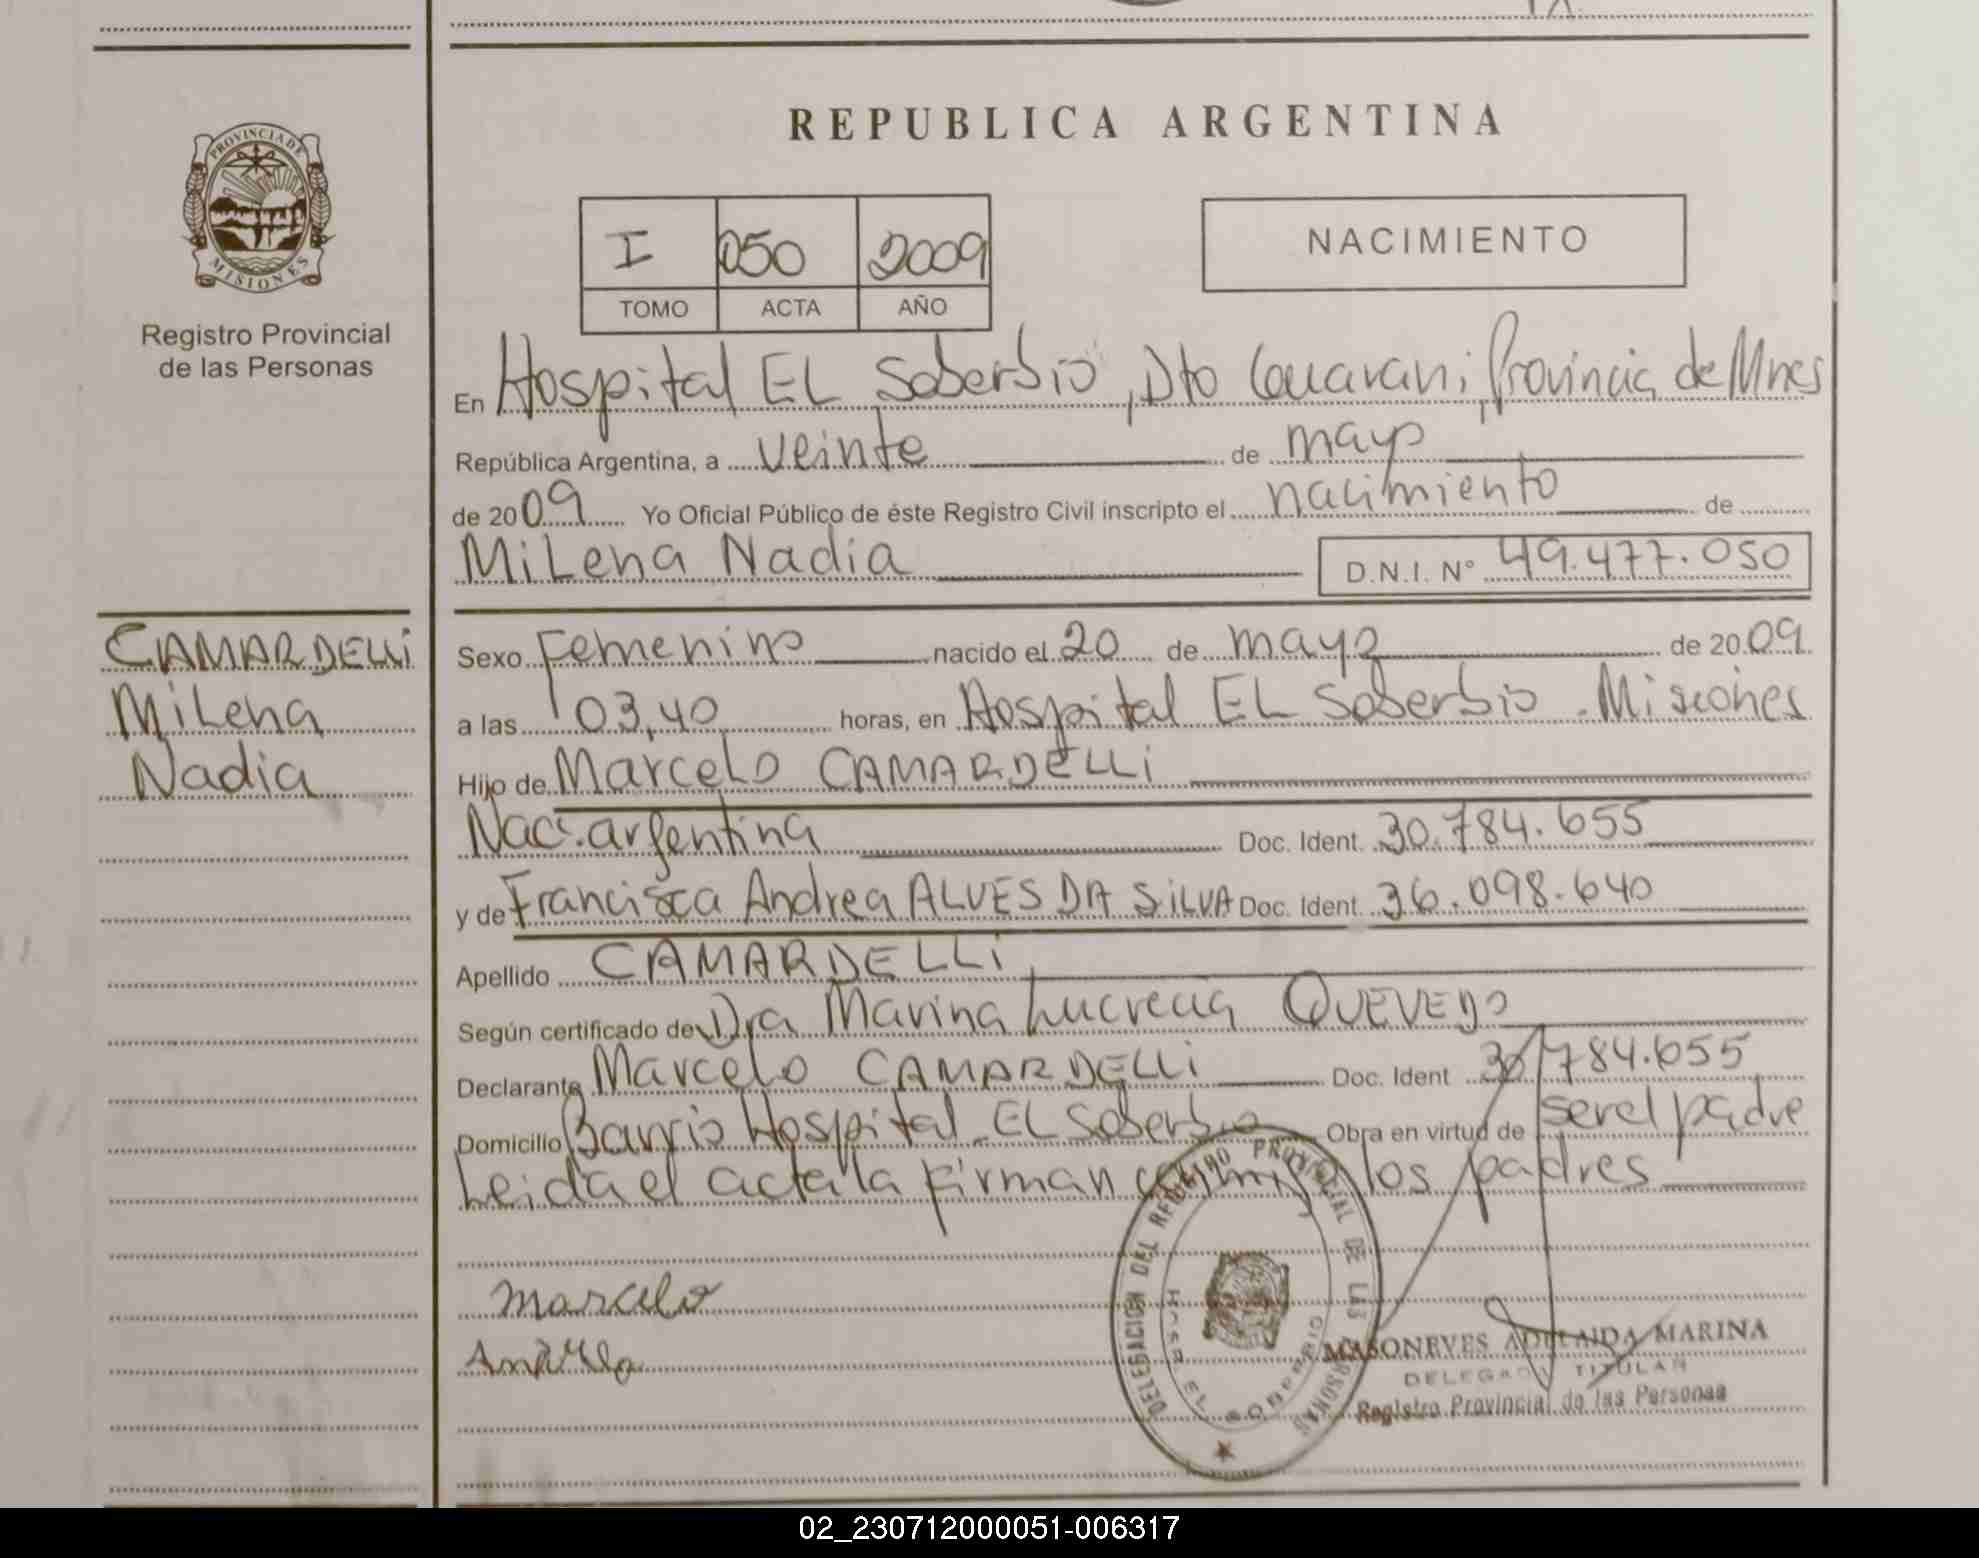 PROVINCIA DE
MISIONES
Registro Provincial
de las Personas
CAMARDELLi
MiLena
Nadia
REPUBLICA ARGENTINA
I 050 2009
TOMO ACTA AÑO
NACIMIENTO
En Hospital EL Soberbio, Dto Guarani, Provincia de Mnes
República Argentina, a veinte de mayo
de 2009 Yo Oficial Público de éste Registro Civil inscripto el nacimiento de
MiLena Nadia D.N.I. N° 49.477.050
Sexo Femenino nacido el 20 de mayo de 2009
a las 03,40 horas, en Hospital EL Soberbio - Misiones
Hijo de Marcelo CAMARDELLi
Nac. argentina Doc. Ident. 30.784.655
y de Francisca Andrea ALVES DA SiLVA Doc. Ident. 36.098.640
Apellido CAMARDELLi
Según certificado de Dra Marina Lucrecia QUEVEDO
Declarante Marcelo CAMARDELLi Doc. Ident 30.784.655
Domicilio Barrio Hospital EL Soberbio Obra en virtud de ser el padre
Leida el acta la firman los padres
marcelo
DELEGACION DEL REGISTRO PROVINCIAL DE LAS PERSONAS
EL SOBERBIO
MASONEVES ADELAIDA MARINA
DELEGADA TITULAR
Registro Provincial de las Personas
02_230712000051-006317